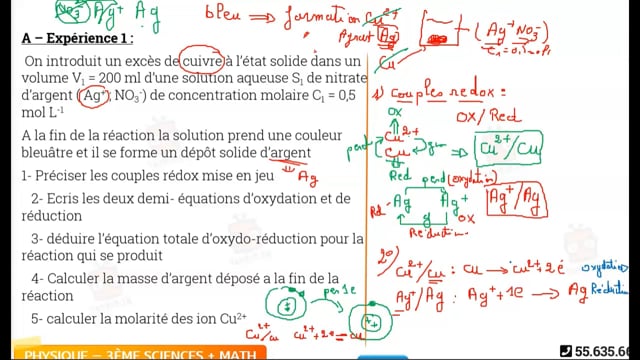 NO3⁻ Ag⁺ Ag
bleu ⟹ formation Cu²⁺
Ag
(Ag⁺ NO3⁻)
Cu
A – Expérience 1 :
On introduit un excès de cuivre à l'état solide dans un
volume V₁ = 200 ml d'une solution aqueuse S₁ de nitrate
d'argent ( Ag⁺; NO₃⁻) de concentration molaire C₁ = 0,5
mol L⁻¹
A la fin de la réaction la solution prend une couleur
bleuâtre et il se forme un dépôt solide d'argent
Ag
1- Préciser les couples rédox mise en jeu
2- Ecris les deux demi- équations d'oxydation et de
réduction
3- déduire l'équation totale d'oxydo-réduction pour la
réaction qui se produit
4- Calculer la masse d'argent déposé à la fin de la
réaction
5- calculer la molarité des ion Cu²⁺
per 1e
Cu²⁺/Cu Cu²⁺+2e = Cu
1) Couples redox :
OX/Red
OX
Cu²⁺
perd
Cu
⟹ Cu²⁺/Cu
Red
perd (oxydation)
Ag Ag⁺
Rd OX
g
Réduction
Ag⁺/Ag
2°)
Cu²⁺/Cu : Cu → Cu²⁺+2e⁻ oxydation
Ag⁺/Ag : Ag⁺+1e → Ag Réduction
PHYSIQUE – 3ÈME SCIENCES + MATH
55.635.66